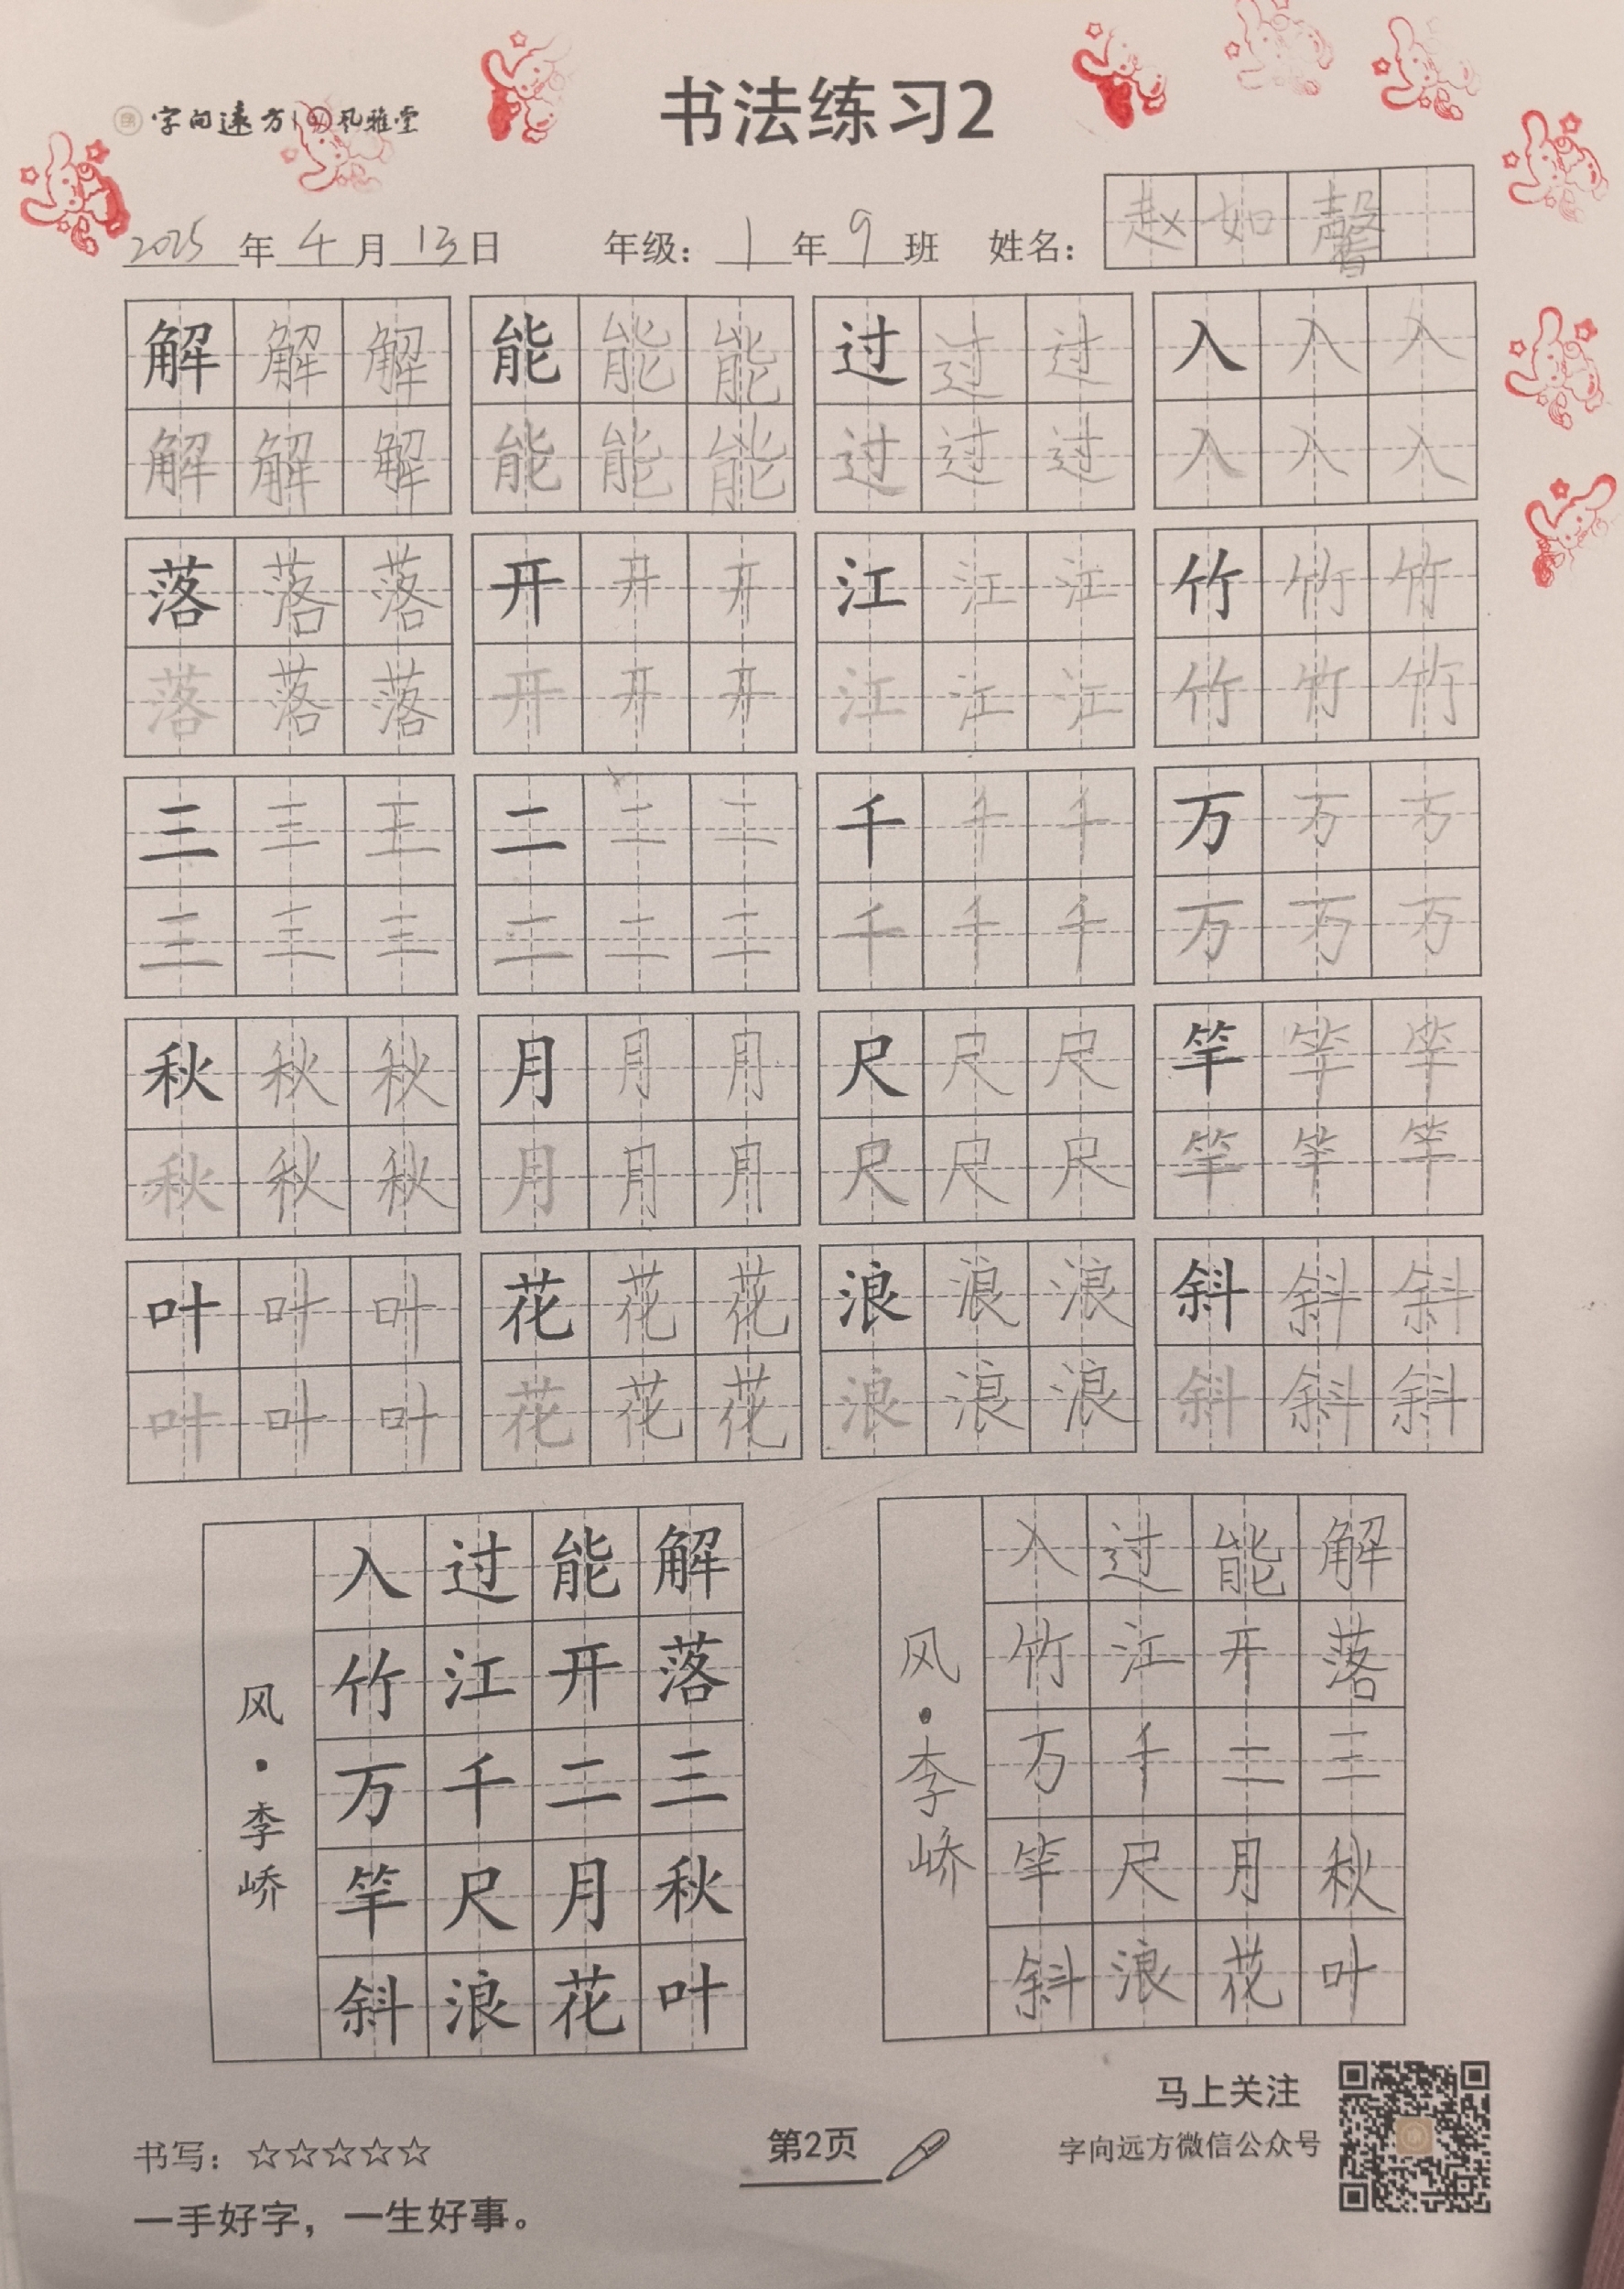 字向远方 风雅堂
书法练习2
2025年4月13日 年级：1年9班 姓名：赵如馨
解解解 能能能 过过过 入入入
解解解 能能能 过过过 入入入
落落落 开开开 江江江 竹竹竹
落落落 开开开 江江江 竹竹竹
三三三 二二二 千千千 万万万
三三三 二二二 千千千 万万万
秋秋秋 月月月 尺尺尺 竿竿竿
秋秋秋 月月月 尺尺尺 竿竿竿
叶叶叶 花花花 浪浪浪 斜斜斜
叶叶叶 花花花 浪浪浪 斜斜斜
解落三秋叶
能开二月花
过江千尺浪
入竹万竿斜
风·李峤
解落三秋叶
能开二月花
过江千尺浪
入竹万竿斜
风·李峤
书写：☆☆☆☆☆
一手好字，一生好事。
第2页
马上关注
字向远方微信公众号